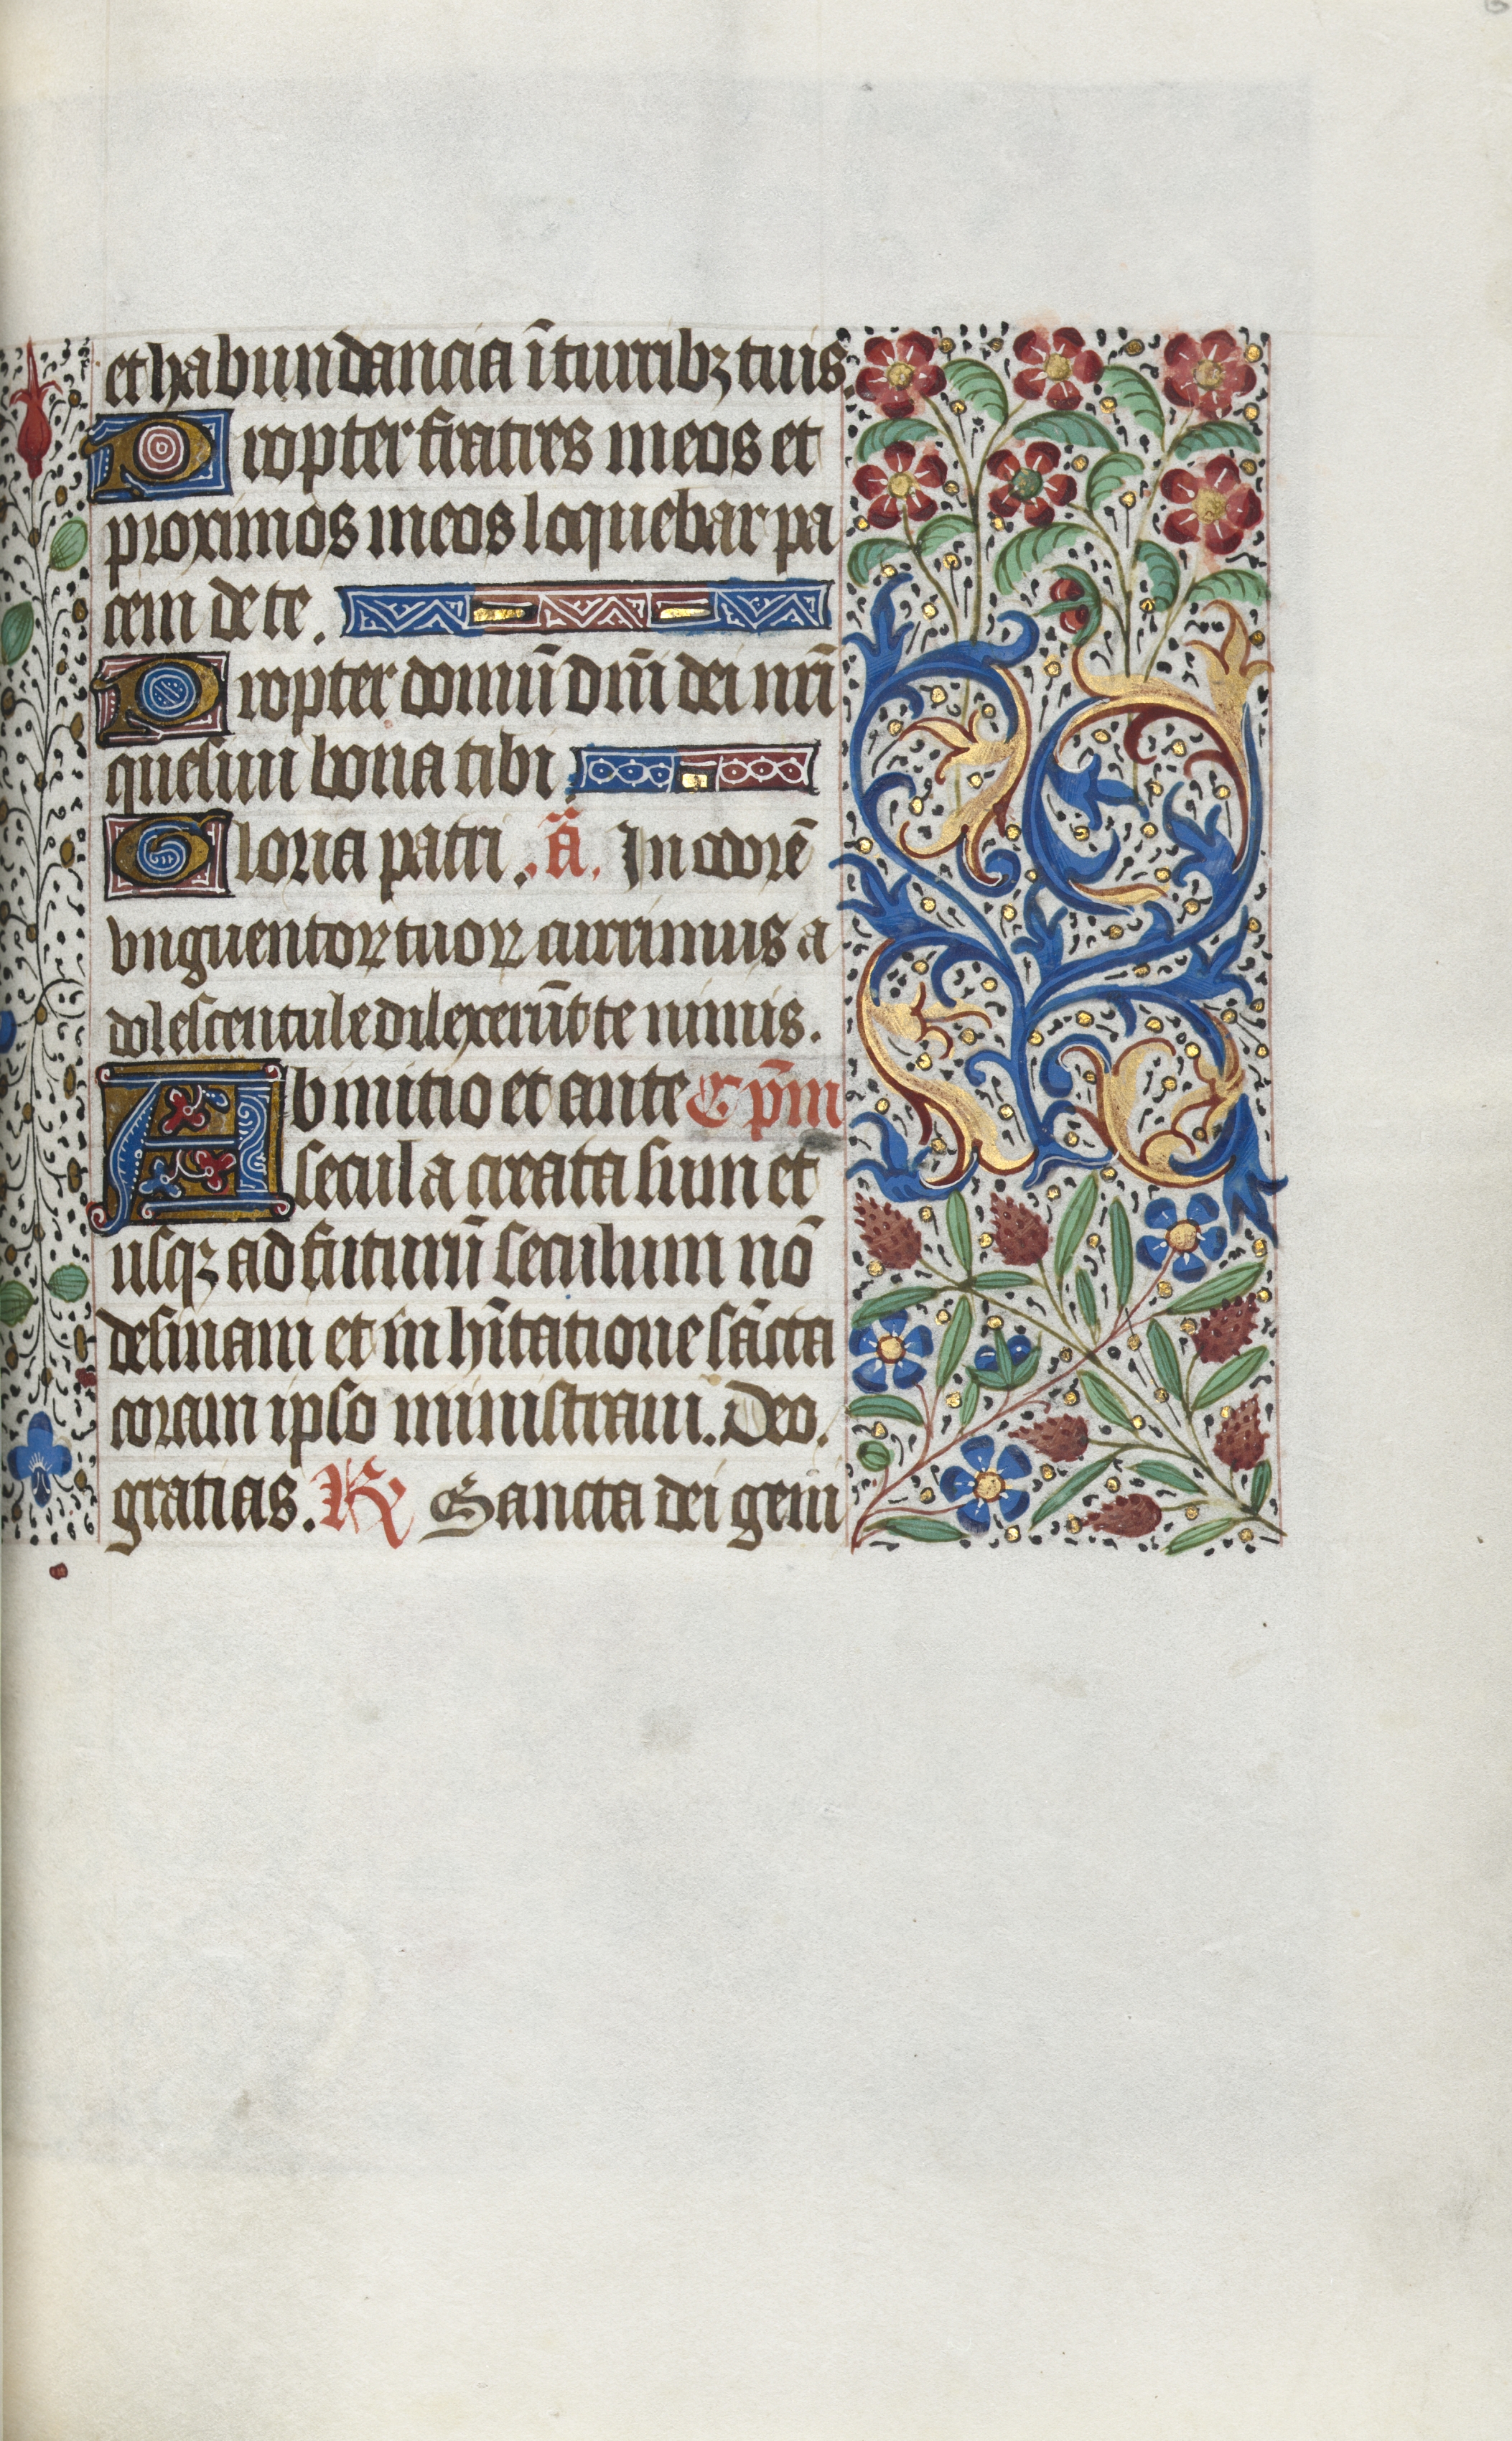 et habundancia ī turribꝫ tuis.
Propter fratres meos et
proximos meos loquebar pa
cem de te.
Propter domū dn̄i dei nr̄i
quesiui bona tibi.
Gloria patri. ā. In odorē
vnguentoꝝ tuoꝝ currimus a
dolescentule dilexerūt te nimis.
Ab initio et ante Cpm̄
secula creata sum et
usqꝫ ad futurū seculum nō
desinam et in hītatione sācta
coram ipso ministraui. Deo.
gratias. ꝶ Sancta dei geni